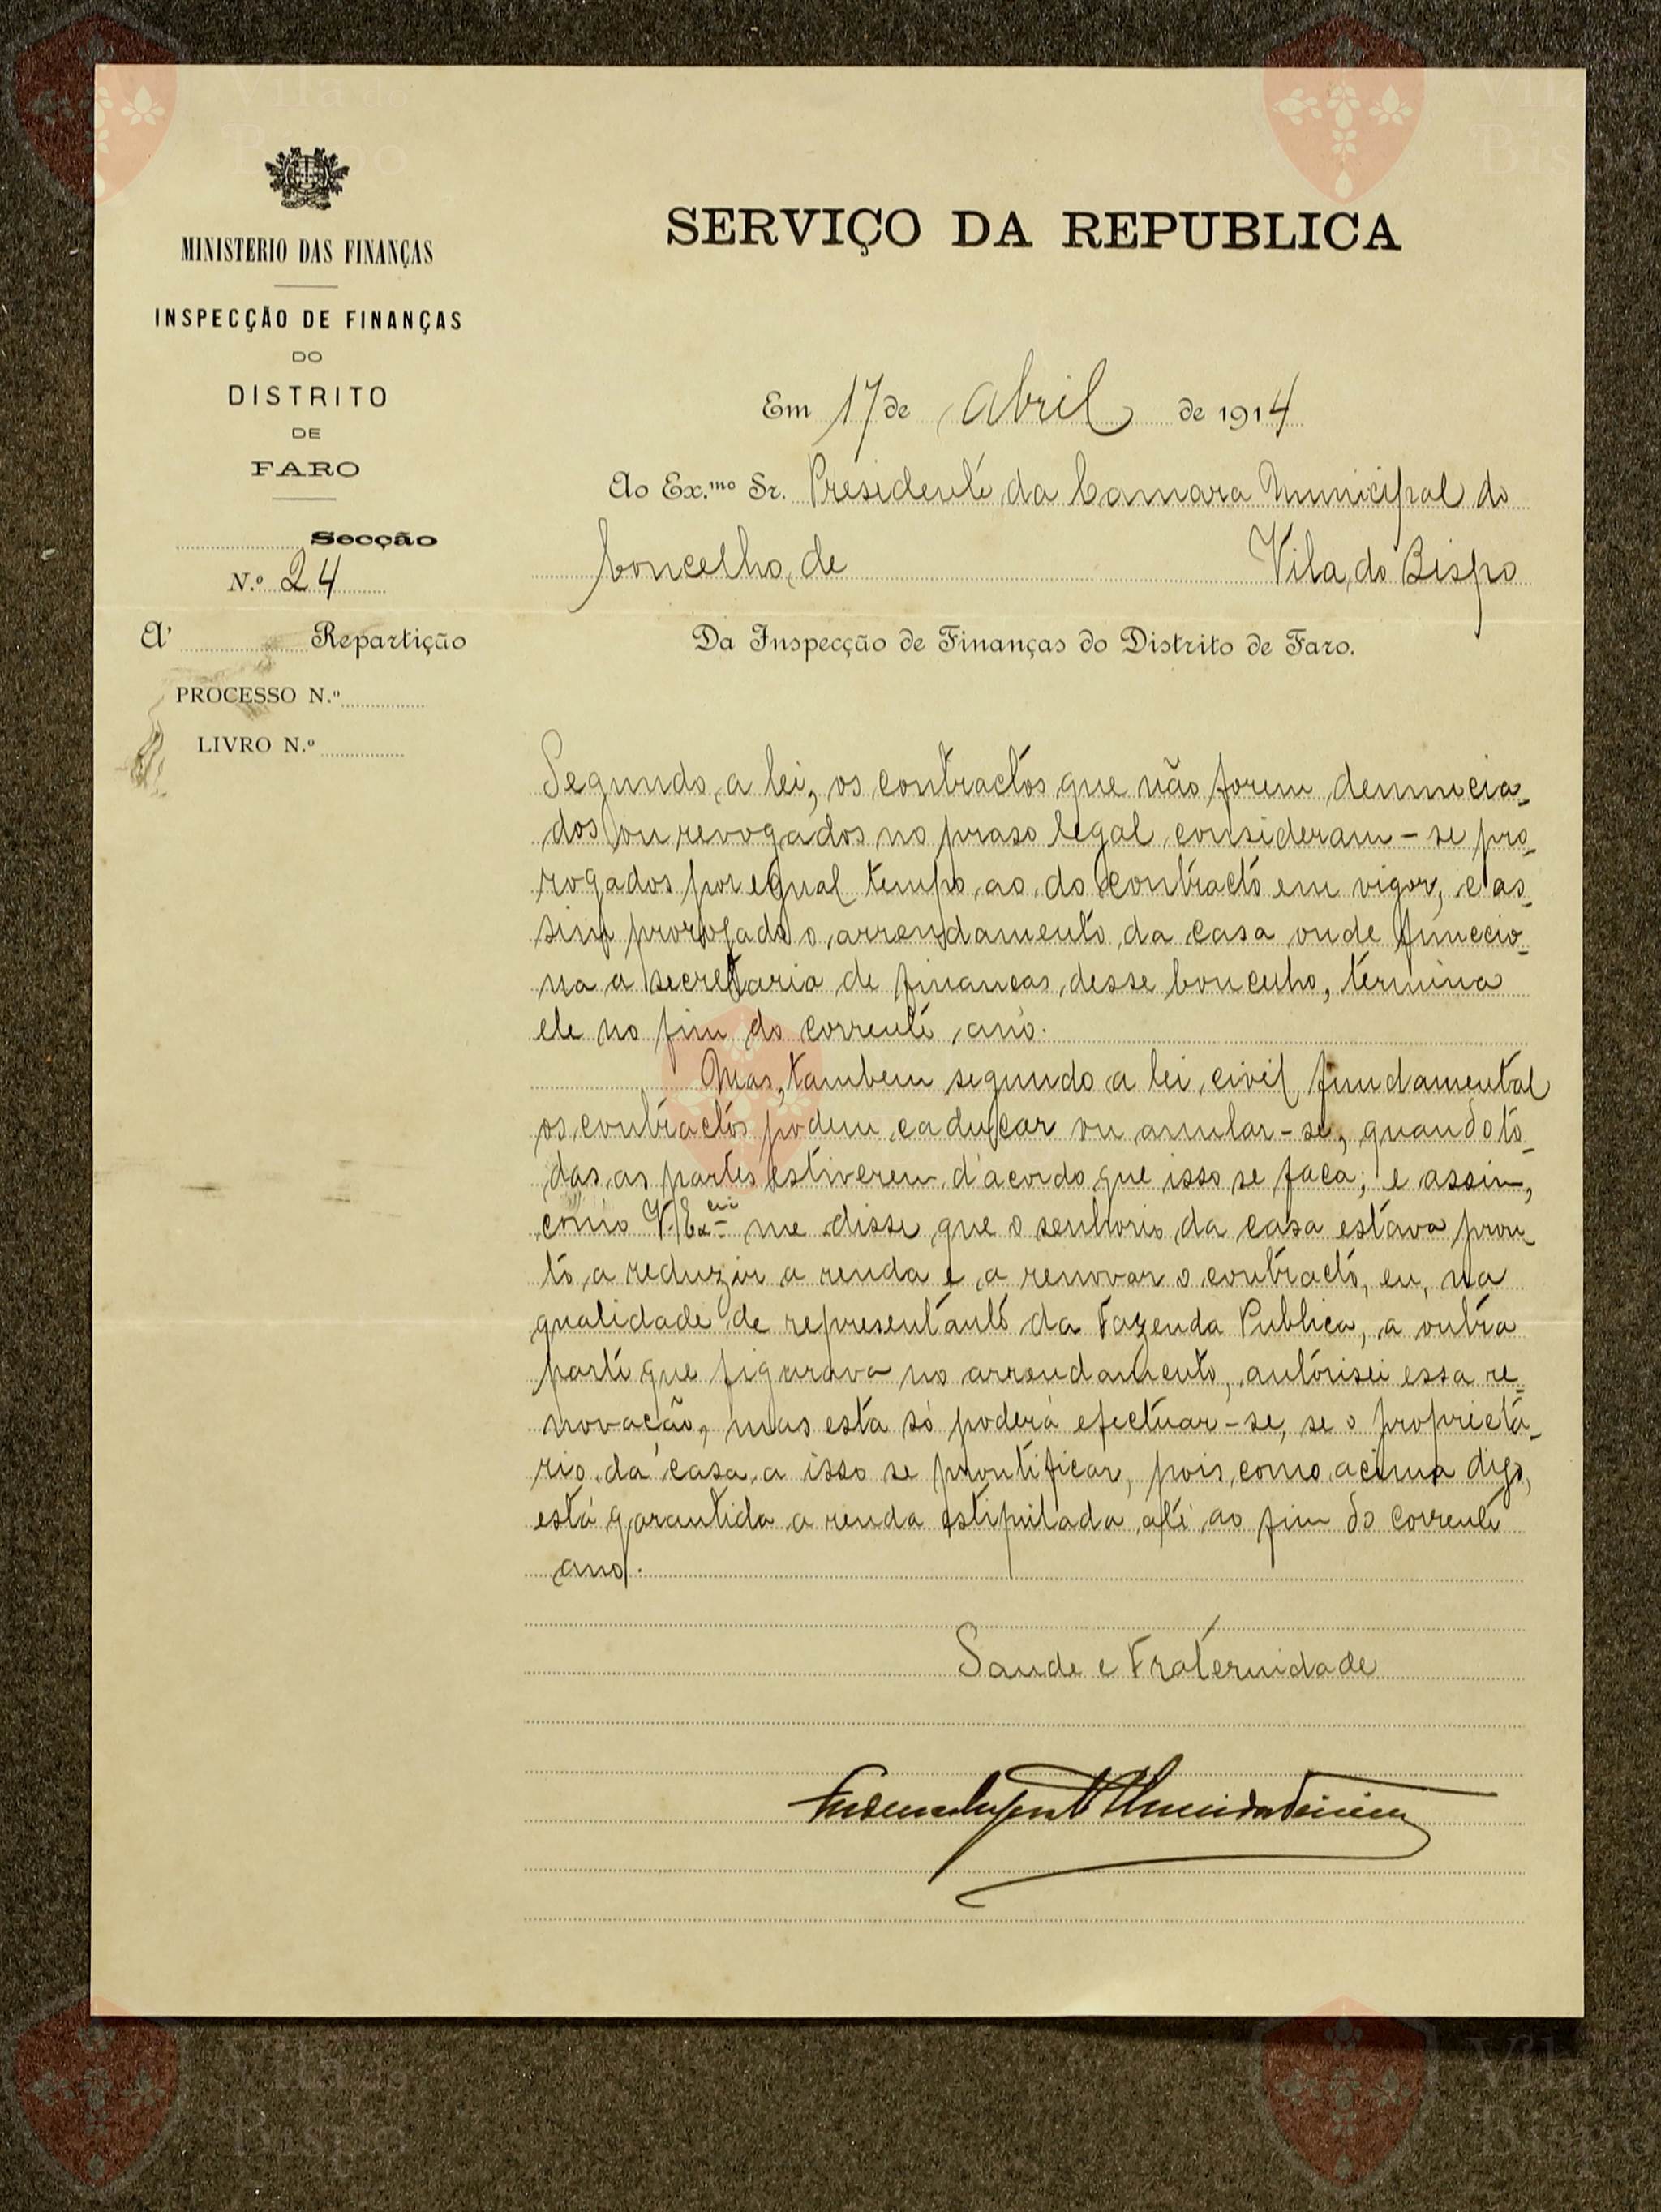 MINISTERIO DAS FINANÇAS
INSPECÇÃO DE FINANÇAS
DO
DISTRITO
DE
FARO
Secção
N.º 24
A' Repartição
PROCESSO N.º
LIVRO N.º
SERVIÇO DA REPUBLICA
Em 17 de Abril de 1914
Ao Ex.mo Sr. Presidente da Camara Municipal do
Concelho de Vila do Bispo
Da Inspecção de Finanças do Distrito de Faro.
Segundo a lei, os contractos que não forem denuncia-
dos ou revogados no praso legal consideram-se pro-
rogados por egual tempo ao do contracto em vigor, e as-
sim prorogado o arrendamento da casa onde funccio-
na a secretaria de finanças desse Concelho, termina
ele no fim do corrente ano.
Mas, tambem segundo a lei civil fundamental
os contractos podem caducar ou anular-se, quando to-
das as partes estiverem d'acordo que isso se faça; e assim,
como V. Ex.cia me disse que o senhorio da casa estava pron-
to a reduzir a renda e a renovar o contracto, eu, na
qualidade de representante da Fazenda Publica, a outra
parte que figurava no arrendamento, autorisei essa re-
novação, mas esta só poderá efectuar-se, se o proprietá-
rio da casa a isso se prontificar, pois, como acima digo,
está garantida a renda estipulada até ao fim do corrente
ano.
Saude e Fraternidade
Vila do
Bispo